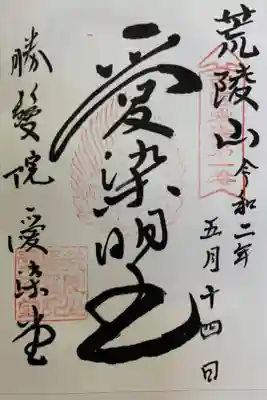 荒陵山
令和二年
五月十四日
愛染明王
勝鬘院愛染堂